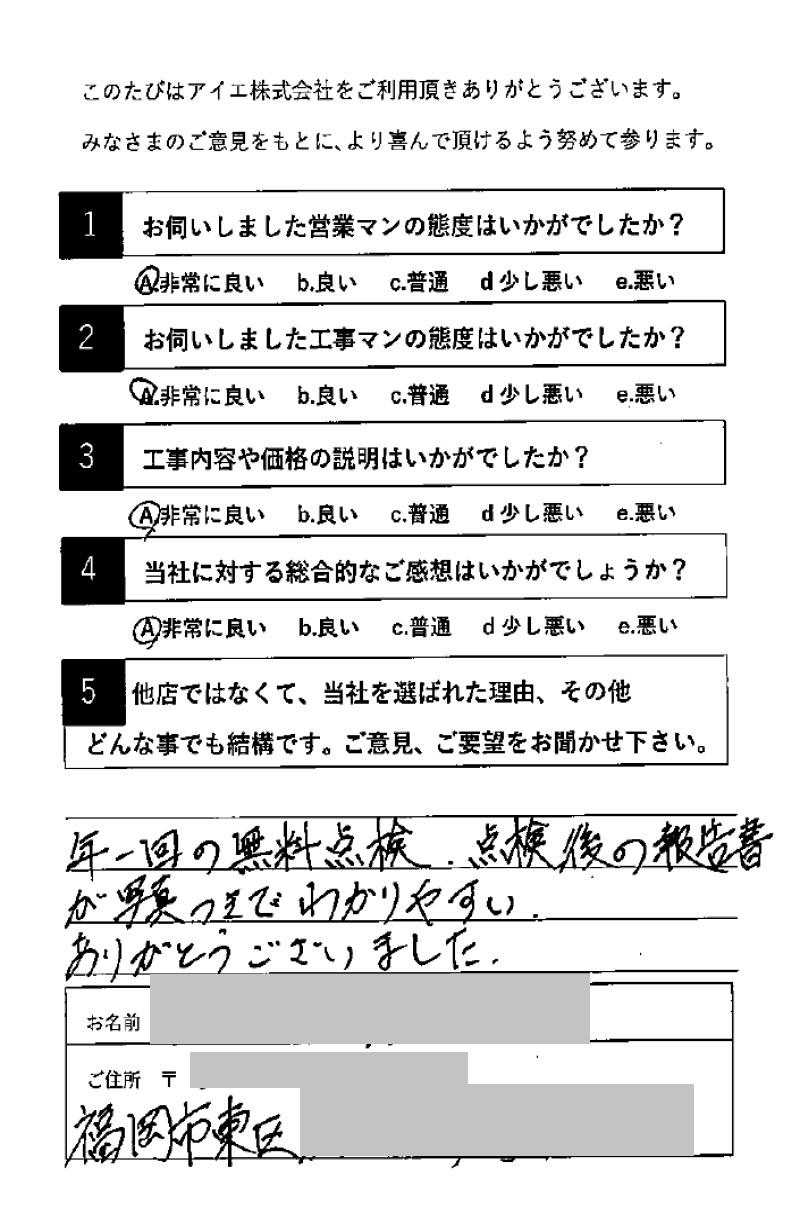 このたびはアイエ株式会社をご利用頂きありがとうございます。
みなさまのご意見をもとに、より喜んで頂けるよう努めて参ります。
1 お伺いしました営業マンの態度はいかがでしたか？
A.非常に良い b.良い c.普通 d少し悪い e.悪い
2 お伺いしました工事マンの態度はいかがでしたか？
A.非常に良い b.良い c.普通 d少し悪い e.悪い
3 工事内容や価格の説明はいかがでしたか？
A.非常に良い b.良い c.普通 d少し悪い e.悪い
4 当社に対する総合的なご感想はいかがでしょうか？
A.非常に良い b.良い c.普通 d少し悪い e.悪い
5 他店ではなくて、当社を選ばれた理由、その他
どんな事でも結構です。ご意見、ご要望をお聞かせ下さい。
年一回の無料点検．点検後の報告書
が写真つきでわかりやすい．
ありがとうございました．
お名前
ご住所 〒
福岡市東区